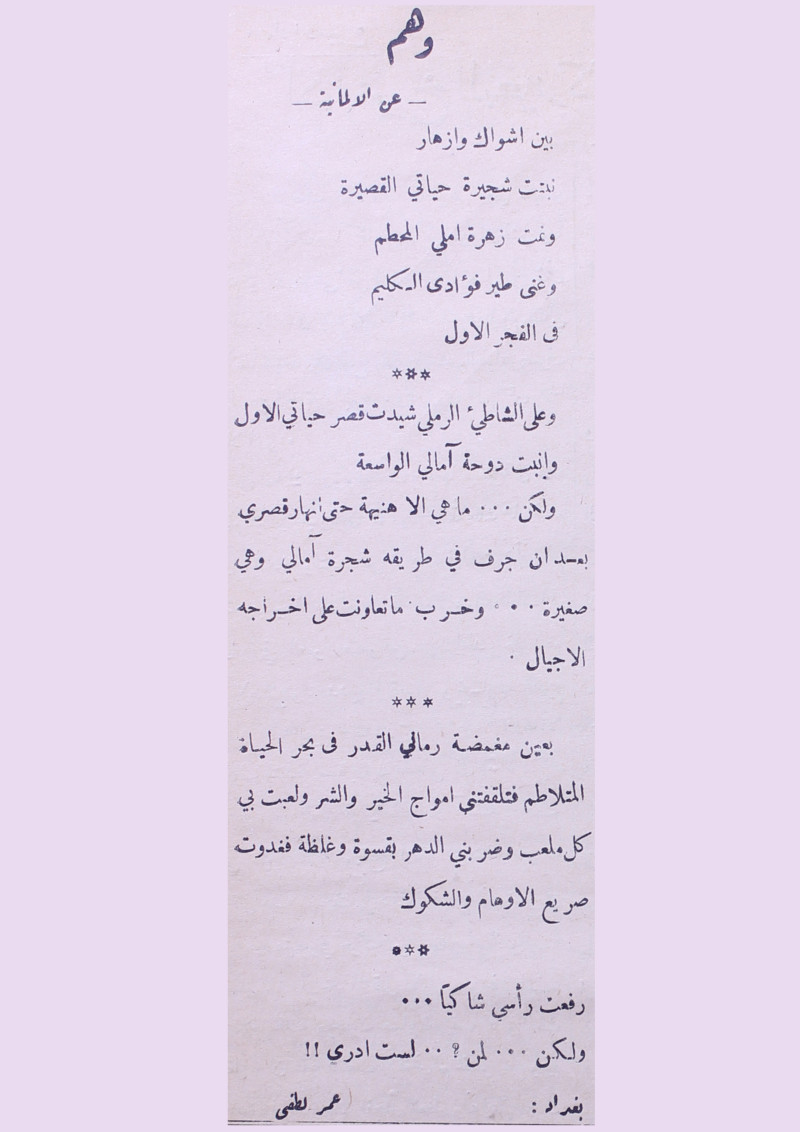 وهم
— عن الالمانية —
بين اشواك وازهار
نبتت شجيرة حياتي القصيرة
ونمت زهرة املي المحطم
وغنى طير فؤادى الكليم
فى الفجر الاول
***
وعلى الشاطيء الرملي شيدت قصر حياتي الاول
وانبت دوحة آمالي الواسعة
ولكن ٠٠٠ ما هي الا هنيهة حتى انهار قصري
بعد ان جرف في طريقه شجرة آمالي وهي
صغيرة ٠٠٠ وخرب ماتعاونت على اخراجه
الاجيال ٠
***
بعين مغمضة رماني القدر فى بحر الحياة
المتلاطم فتلقفتني امواج الخير والشر ولعبت بي
كل ملعب وضربني الدهر بقسوة وغلظة فغدوت
صريع الاوهام والشكوك
***
رفعت رأسي شاكيًا ٠٠٠
ولكن ٠٠٠ لمن ؟ ٠٠ لست ادرى !!
بغداد : عمر لطفي